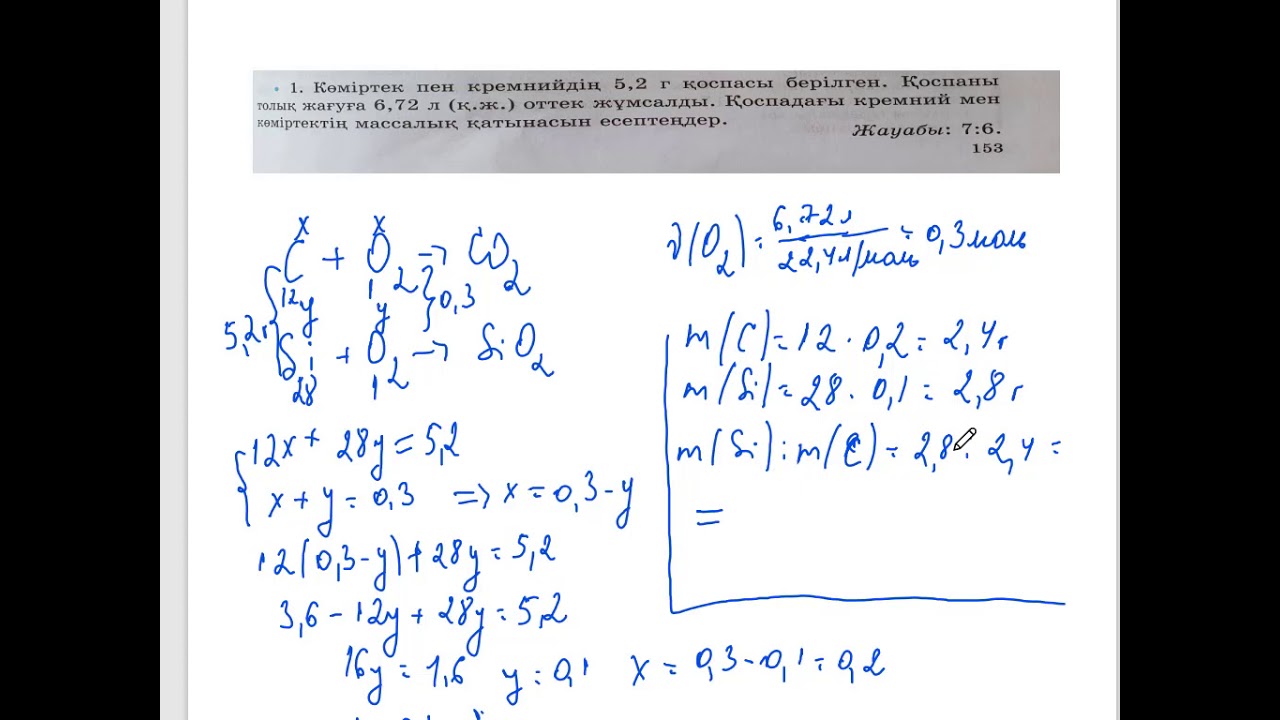 1. Көміртек пен кремнийдің 5,2 г қоспасы берілген. Қоспаны
толық жағуға 6,72 л (қ.ж.) оттек жұмсалды. Қоспадағы кремний мен
көміртектің массалық қатынасын есептеңдер.
Жауабы: 7:6.
153
x x
C + O2 → CO2
12 1
y y
0,3
5,2г
Si + O2 → SiO2
28 1
12x + 28y = 5,2
x + y = 0,3 => x = 0,3 - y
12(0,3 - y) + 28y = 5,2
3,6 - 12y + 28y = 5,2
16y = 1,6 y = 0,1 x = 0,3 - 0,1 = 0,2
ν(O2) = 6,72л / 22,4л/моль = 0,3моль
m(C) = 12 · 0,2 = 2,4г
m(Si) = 28 · 0,1 = 2,8г
m(Si) : m(C) = 2,8 : 2,4 =
=